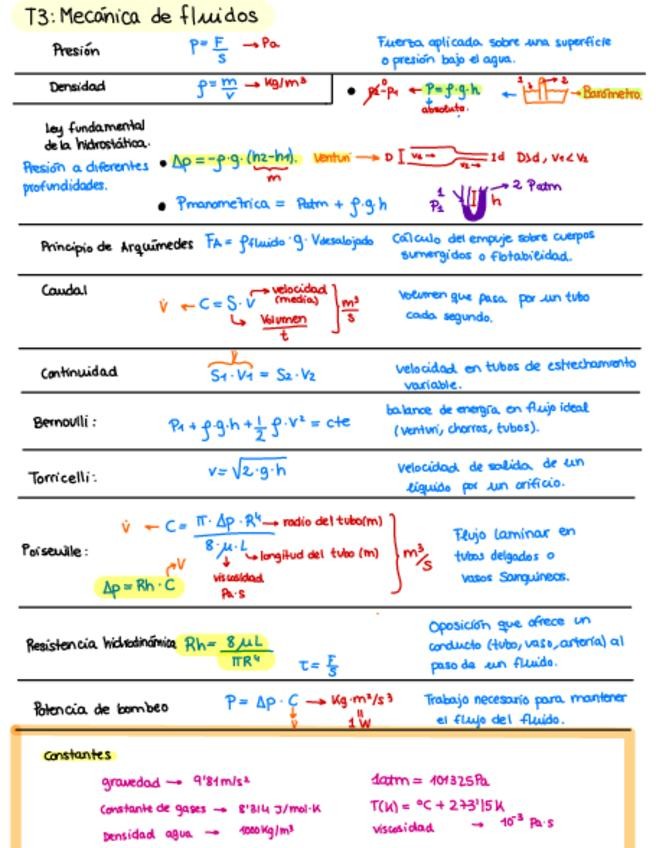 T3: Mecánica de fluidos
Presión P = F/S → Pa Fuerza aplicada sobre una superficie
o presión bajo el agua.
Densidad ρ = m/v → kg/m³ • P2⁰-P1 ← P = ρ·g·h ← 1 3 2 → Barómetro.
absoluta.
Ley fundamental
de la hidrostática.
Presión a diferentes
profundidades.
• Δp = -ρ·g·(h2-h1). Venturi → D I V1 → V2 → I d D>d, V1<V2
m
• Pmanometrica = Patm + ρ·g·h 1 P1 2 Patm h
Principio de Arquímedes FA = ρfluido · g · Vdesalojado Cálculo del empuje sobre cuerpos
sumergidos o flotabilidad.
Caudal V̇ ← C = S · V → velocidad (media) Volumen que pasa por un tubo
↳ Volumen/t ] m³/s cada segundo.
Continuidad V̇ S1·V1 = S2·V2 velocidad en tubos de estrechamiento
variable.
Bernoulli: P1 + ρ·g·h + 1/2 ρ·v² = cte balance de energía en flujo ideal
(venturi, chorros, tubos).
Torricelli: v = √2·g·h Velocidad de salida de un
líquido por un orificio.
Poiseuille: V̇ ← C = π·Δp·R⁴ / 8·μ·L → radio del tubo(m)
↳ longitud del tubo (m)
viscosidad
Pa·s
} m³/s
Δp = Rh · C V̇
Flujo laminar en
tubos delgados o
vasos sanguíneos.
Resistencia hidrodinámica Rh = 8μL / πR⁴ τ = F/S Oposición que ofrece un
conducto (tubo, vaso, arteria) al
paso de un fluido.
Potencia de bombeo P = Δp · C → Kg·m²/s³ Trabajo necesario para mantener
V̇ 1W el flujo del fluido.
Constantes
gravedad → 9'81 m/s² 1atm = 101325 Pa
Constante de gases → 8'314 J/mol·K T(K) = °C + 273'15 K
Densidad agua → 1000 Kg/m³ viscosidad → 10⁻³ Pa·s